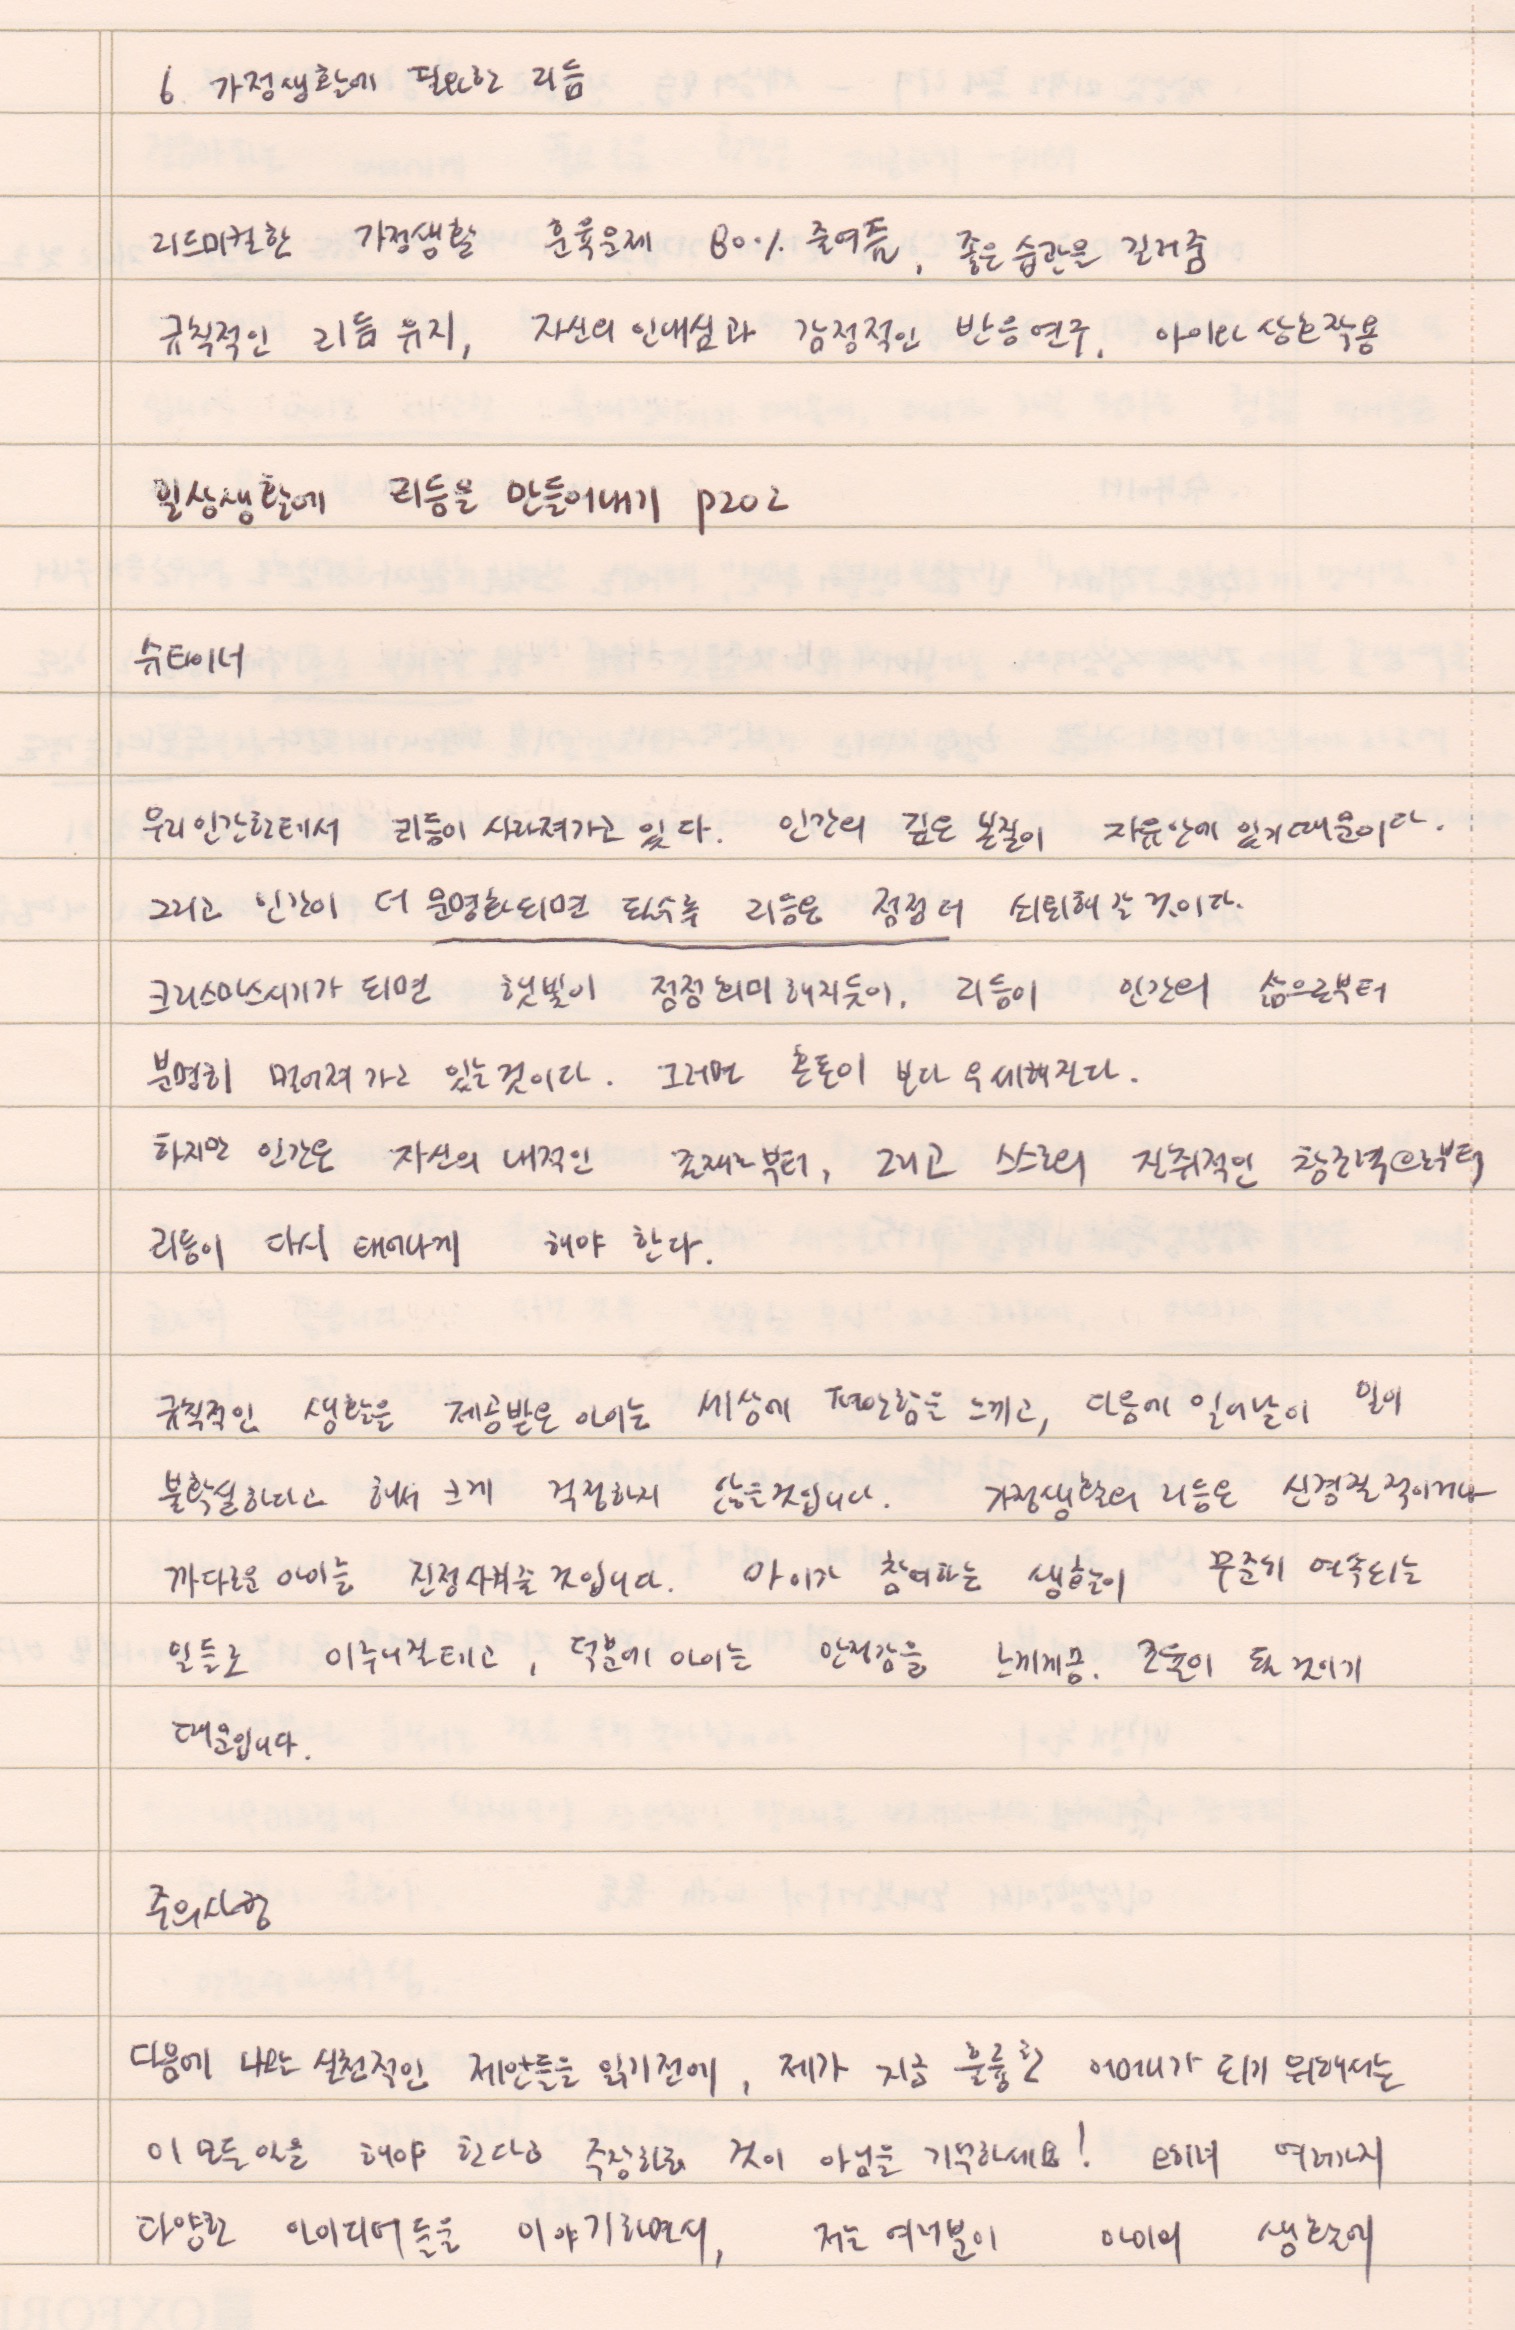 6 가정생활에 필요한 리듬
리드미컬한 가정생활 훈육문제 80% 줄여줌, 좋은 습관을 길러줌
규칙적인 리듬 유지, 자신의 인내심과 감정적인 반응연구, 아이와 상호작용
일상생활에 리듬을 만들어내기 p202
슈타이너
우리 인간한테서 리듬이 사라져가고 있다. 인간의 깊은 본질이 자유안에 있기때문이다.
그리고 인간이 더 문명화되면 될수록 리듬은 점점 더 쇠퇴해 갈 것이다.
크리스마스시기가 되면 햇빛이 점점 희미해지듯이, 리듬이 인간의 삶으로부터
분명히 멀어져 가고 있는 것이다. 그러면 혼돈이 보다 우세해진다.
하지만 인간은 자신의 내적인 존재로부터, 그리고 스스로의 진취적인 창조력으로부터
리듬이 다시 태어나게 해야 한다.
규칙적인 생활을 제공받은 아이는 세상에 편안함을 느끼고, 다음에 일어날 일이
불확실하다고 해서 크게 걱정하지 않을것입니다. 가정생활의 리듬은 신경질적이거나
까다로운 아이를 진정시켜줄 것입니다. 아이가 참여하는 생활이 꾸준히 연속되는
일들로 이루어질테고, 덕분에 아이는 안정감을 느끼게끔. 조율이 될 것이기
때문입니다.
주의사항
다음에 나오는 실천적인 제안들을 읽기전에, 제가 지금 훌륭한 어머니가 되기 위해서는
이 모든 일을 해야 한다고 주장하는 것이 아님을 기억하세요! 오히려 여러가지
다양한 아이디어들을 이야기하면서, 저는 여러분이 아이의 생활에